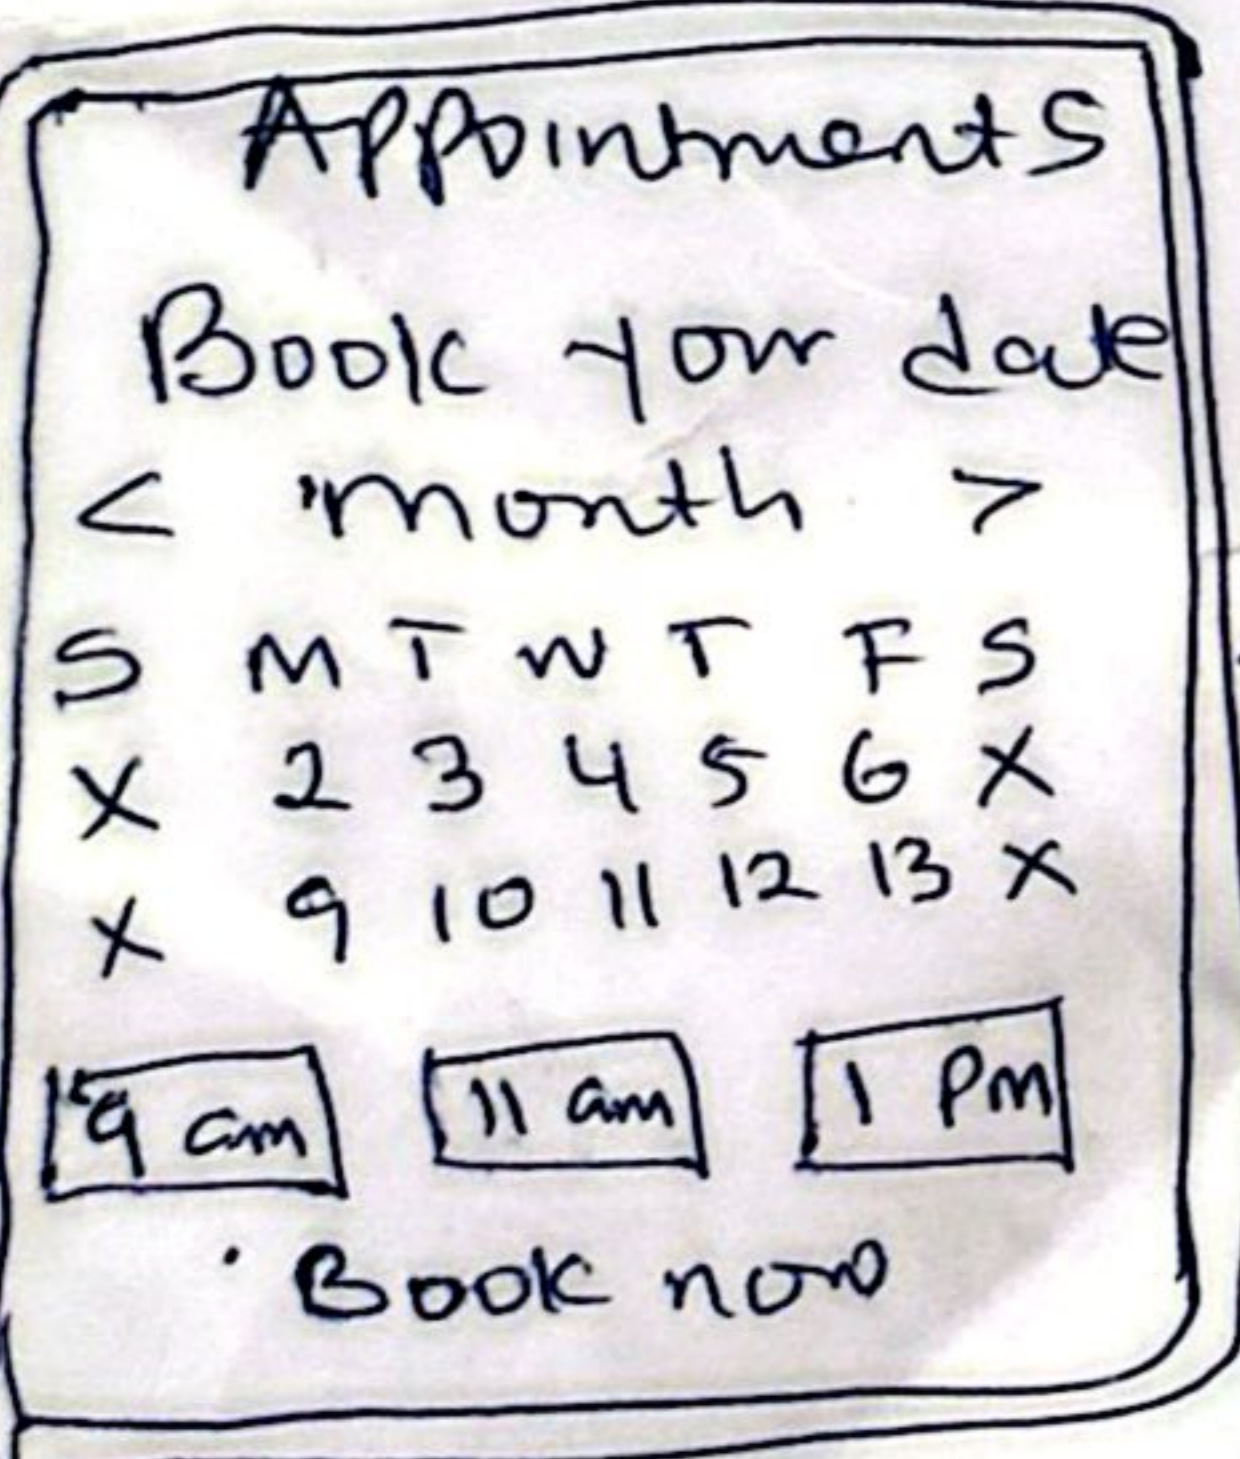 Appointments
Book your date
< month >
S M T W T F S
X 2 3 4 5 6 X
X 9 10 11 12 13 X
9 am 11 am 1 Pm
Book now